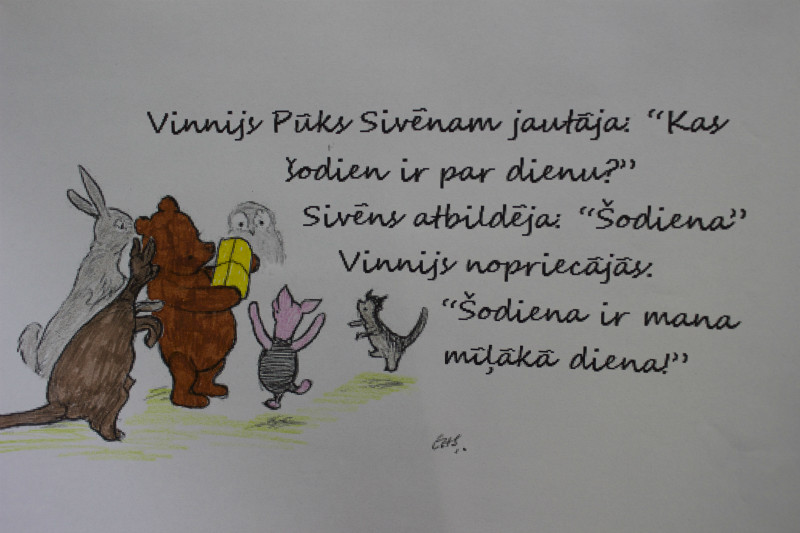 Vinnijs Pūks Sivēnam jautāja: “Kas
šodien ir par dienu?”
Sivēns atbildēja: “Šodiena”
Vinnijs nopriecājās.
“Šodiena ir mana
mīļākā diena!”